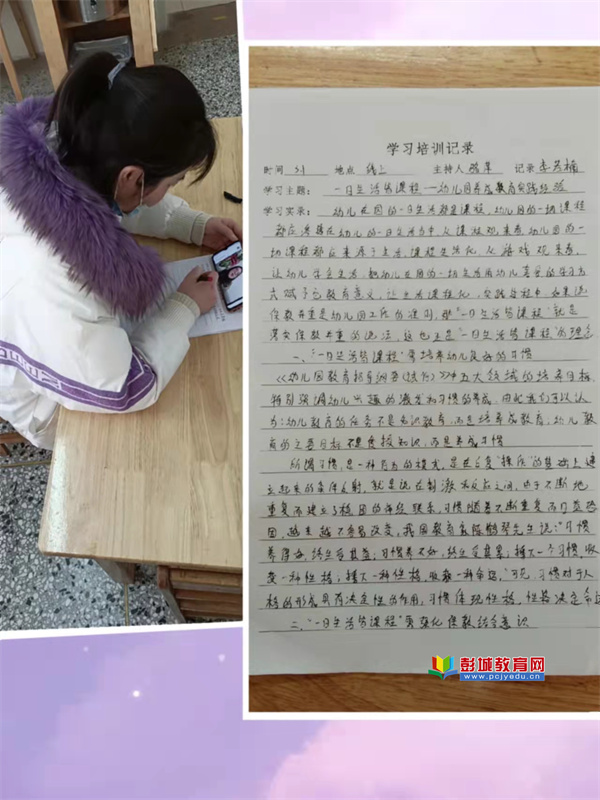 学习培训记录
时间 3.1 地点 线上 主持人 记录
学习主题: 一日生活皆课程——幼儿园养成教育实践经验
学习实录: 幼儿在园的一日生活都是课程,幼儿园的一切课程
都应渗透在幼儿的一日生活当中,从课程观来看幼儿园的一
切课程都应来源于生活,课程生活化,从游戏观来看,
让幼儿学会生活,把幼儿在园的一切生活用幼儿喜爱的
赋予它教育意义,让生活课程化,实践过程中如果说
保教并重是幼儿园工作的准则,那“一日生活皆课程”就是
落实保教并重的说法,这也正是“一日生活皆课程”的理念
一、“一日生活皆课程”需培养幼儿良好的习惯
《幼儿园教育指导纲要(试行)》中五大领域的培养目标,
特别强调幼儿兴趣的激发和习惯的养成,由此我们可以认
为:幼儿教育的任务不是知识教育,而是培养成教育,幼儿教
育的主要目标不是传授知识,而是养成习惯
所谓习惯,是一种行为的模式,是在反复“操练”的基础上建
立起来的条件反射,就是说在刺激和反应之间,由于不断地
重复而建立了稳固的神经联系,习惯随着不断重复而日益巩
固,越来越不容易改变,我国教育家陈鹤琴先生说:“习惯
养得好,终生受其益;习惯养不好,终生受其累;播下一个习惯,收
获一种性格;播下一种性格,收获一种命运,”可见,习惯对于人
格的形成具有决定性的作用,习惯体现性格,性格决定命运
二、“一日生活皆课程”需强化保教结合意识
彭城教育网
www.pcjyedu.cn